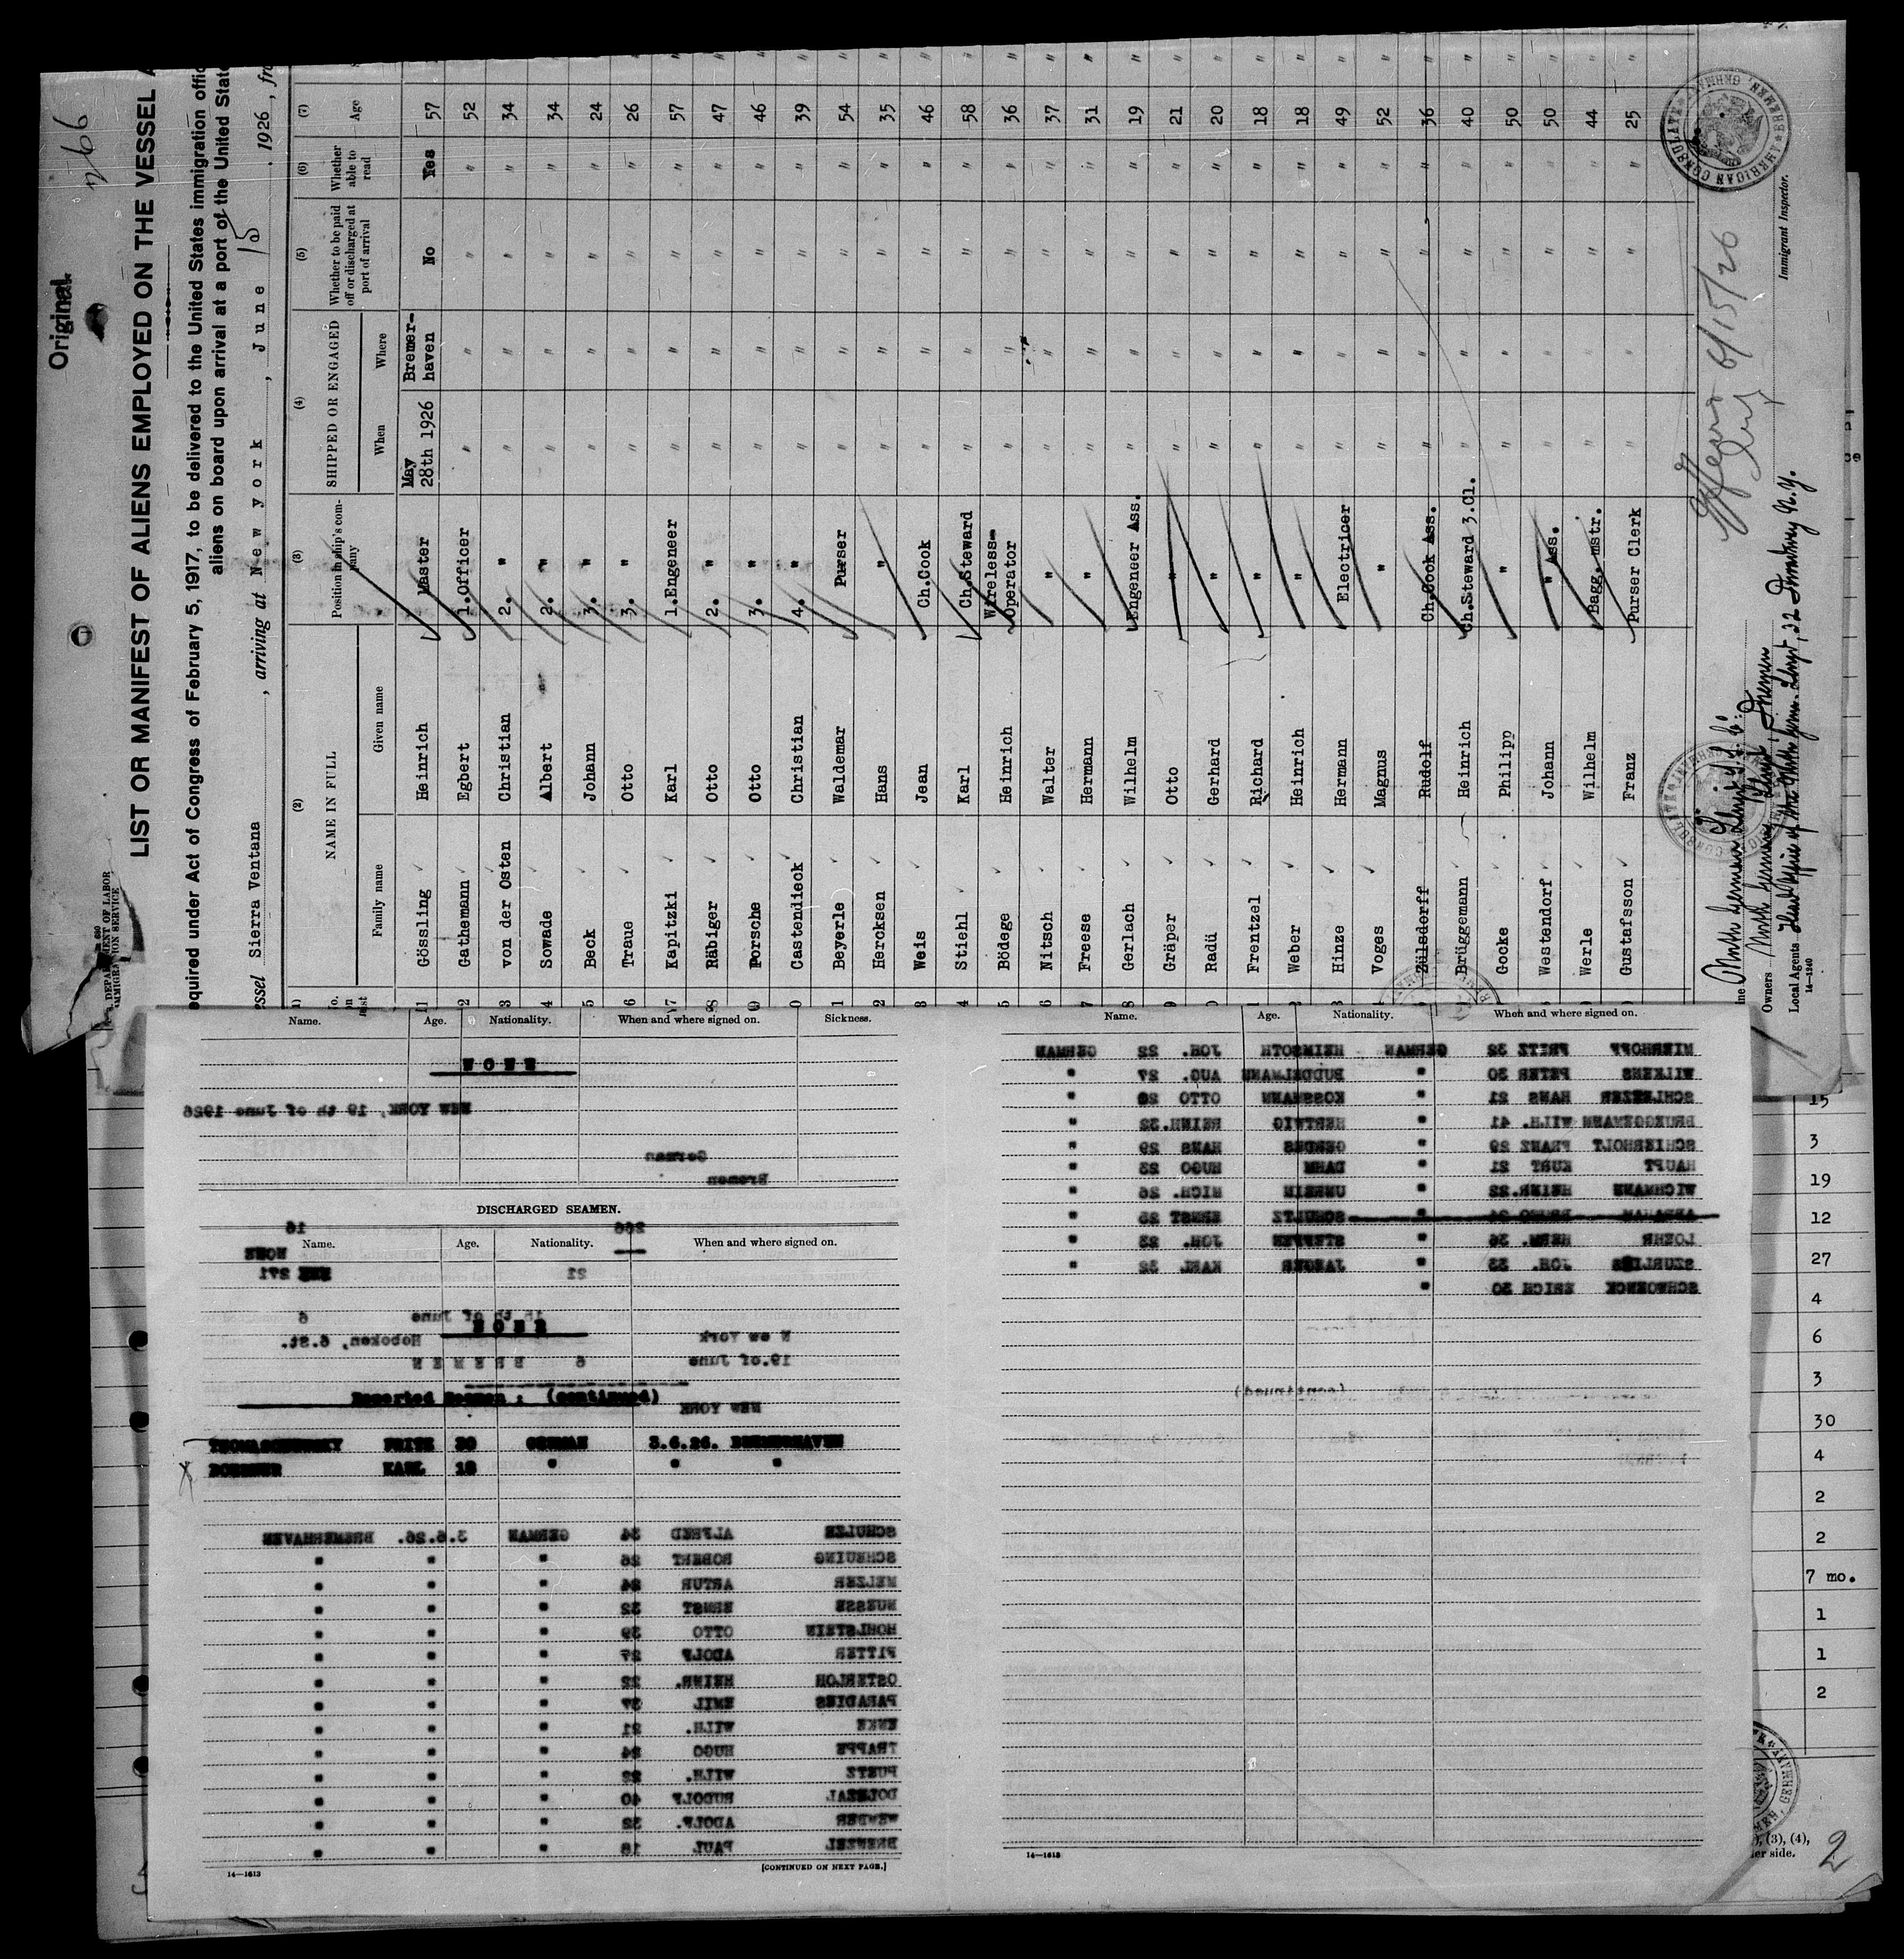 Original
266
LIST OR MANIFEST OF ALIENS EMPLOYED ON THE VESSEL A
equired under Act of Congress of February 5, 1917, to be delivered to the United States immigration offic
aliens on board upon arrival at a port of the United State
essel Sierra Ventana , arriving at New york , June 15 . 1926 , fro
(2) (3) (4) (5) (6) (7)
NAME IN FULL Position in ship's company SHIPPED OR ENGAGED Whether to be paid off or discharged at port of arrival Whether able to read Age
Family name Given name When Where
1 Gössling Heinrich Master May 28th 1926 Bremer-haven No Yes 57
2 Gathemann Egbert 1.Officer " " " " 52
3 von der Osten Christian 2. " " " " " 34
4 Sowade Albert 2. " " " " " 34
5 Beck Johann 3. " " " " " 24
6 Traue Otto 3. " " " " " 26
7 Kapitzki Karl 1.Engeneer " " " " 57
8 Räbiger Otto 2. " " " " " 47
9 Porsche Otto 3. " " " " " 46
0 Castendieck Christian 4. " " " " " 39
1 Beyerle Waldemar Purser " " " " 54
2 Hercksen Hans " " " " " 35
3 Weis Jean Ch.Cook " " " " 46
4 Stiehl Karl Ch.Steward " " " " 58
5 Bödege Heinrich Wireless-Operator " " " " 36
6 Nitsch Walter " " " " " 37
7 Freese Hermann " " " " " 31
8 Gerlach Wilhelm Engeneer Ass. " " " " 19
9 Gräper Otto " " " " " 21
0 Radü Gerhard " " " " " 20
1 Frentzel Richard " " " " " 18
2 Weber Heinrich " " " " " 18
3 Hinze Hermann Electricer " " " " 49
Voges Magnus " " " " " 52
Zülsdorff Rudolf Ch.Cook Ass. " " " " 36
Brüggemann Heinrich Ch.Steward 3.Cl. " " " " 40
Gocke Philipp " " " " " 50
Westendorf Johann " Ass. " " " " 50
Werle Wilhelm Bagg.mstr. " " " " 44
Gustafsson Franz Purser Clerk " " " " 25
6/15/26
Immigrant Inspector.
Owners North German Lloyd, Bremen
Local Agents
14—1240
AMERICAN CONSULATE BREMEN, GERMANY
Name. Age. Nationality. When and where signed on. Sickness.
NONE
NEW YORK, 19 th of June 1926
German
Bremen
DISCHARGED SEAMEN.
16 266
Name. Age. Nationality. When and where signed on.
NONE
271 21
15 th of June 6
NONE
Hoboken, 6.St. New York
BREMEN 6 19.of June
Deserted Seamen ; (continued)
NEW YORK
FRITZ 30 GERMAN 3.6.26. BREMERHAVEN
KARL 18 " " "
SCHULZE ALFRED 34 GERMAN 3.6.26. BREMERHAVEN
SCHEUING ROBERT 26 " " "
MELZER ARTUR 24 " " "
RUESSE ERNST 32 " " "
HOHLSTEIN OTTO 39 " " "
FITTER ADOLF 27 " " "
OSTERLOH HEINR. 22 " " "
PARADIES EMIL 37 " " "
ENKE WILH. 21 " " "
TRAPPE HUGO 24 " " "
PUETZ WILH. 22 " " "
DOLEZAL RUDOLF 40 " " "
WEWEDER ADOLF. 32 " " "
BRENZEL PAUL 18 " " "
14—1613
[CONTINUED ON NEXT PAGE.]
Name. Age. Nationality. When and where signed on.
MIERHOFF FRITZ 32 GERMAN HEIMSOTH JOH. 22 GERMAN
WILKENS PETER 30 " BUDDELMANN AUG. 27 "
SCHLEIZER HANS 21 " KOSSMANN OTTO 20 "
BRUEGGEMANN WILH. 41 " HERTWIG REINH. 32 "
SCHIERHOLT FRANZ 29 " GERDES HANS 29 "
HAUPT KURT 21 " DAHM HUGO 23 "
WICHMANN HEINR. 22 " UNREIN RICH. 26 "
ABRAHAM BRUNO 24 " SCHULTZ ERNST 25 "
LOEHR HERM. 36 " STEFFEN JOH. 23 "
JOH. 33 " JAEGER KARL 32 "
SCHWOENCK ERICH 30 "
(continued)
14—1613
15
3
19
12
27
4
6
3
30
4
2
2
7 mo.
1
1
2
, (3), (4),
er side.
2